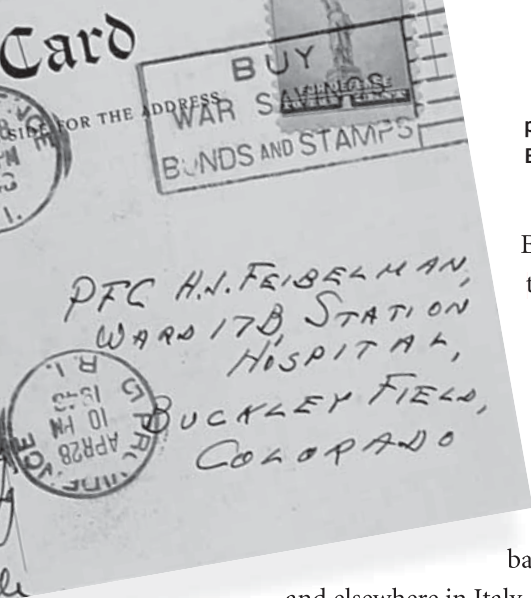 Card
SIDE FOR THE ADDRESS
BUY
WAR SAVINGS
BONDS AND STAMPS
PFC H.J. FEIBELMAN,
WARD 17B, STATION
HOSPITAL,
BUCKLEY FIELD,
COLORADO
APR 28
10 PM
R. I.
ba
and elsewhere in Italy